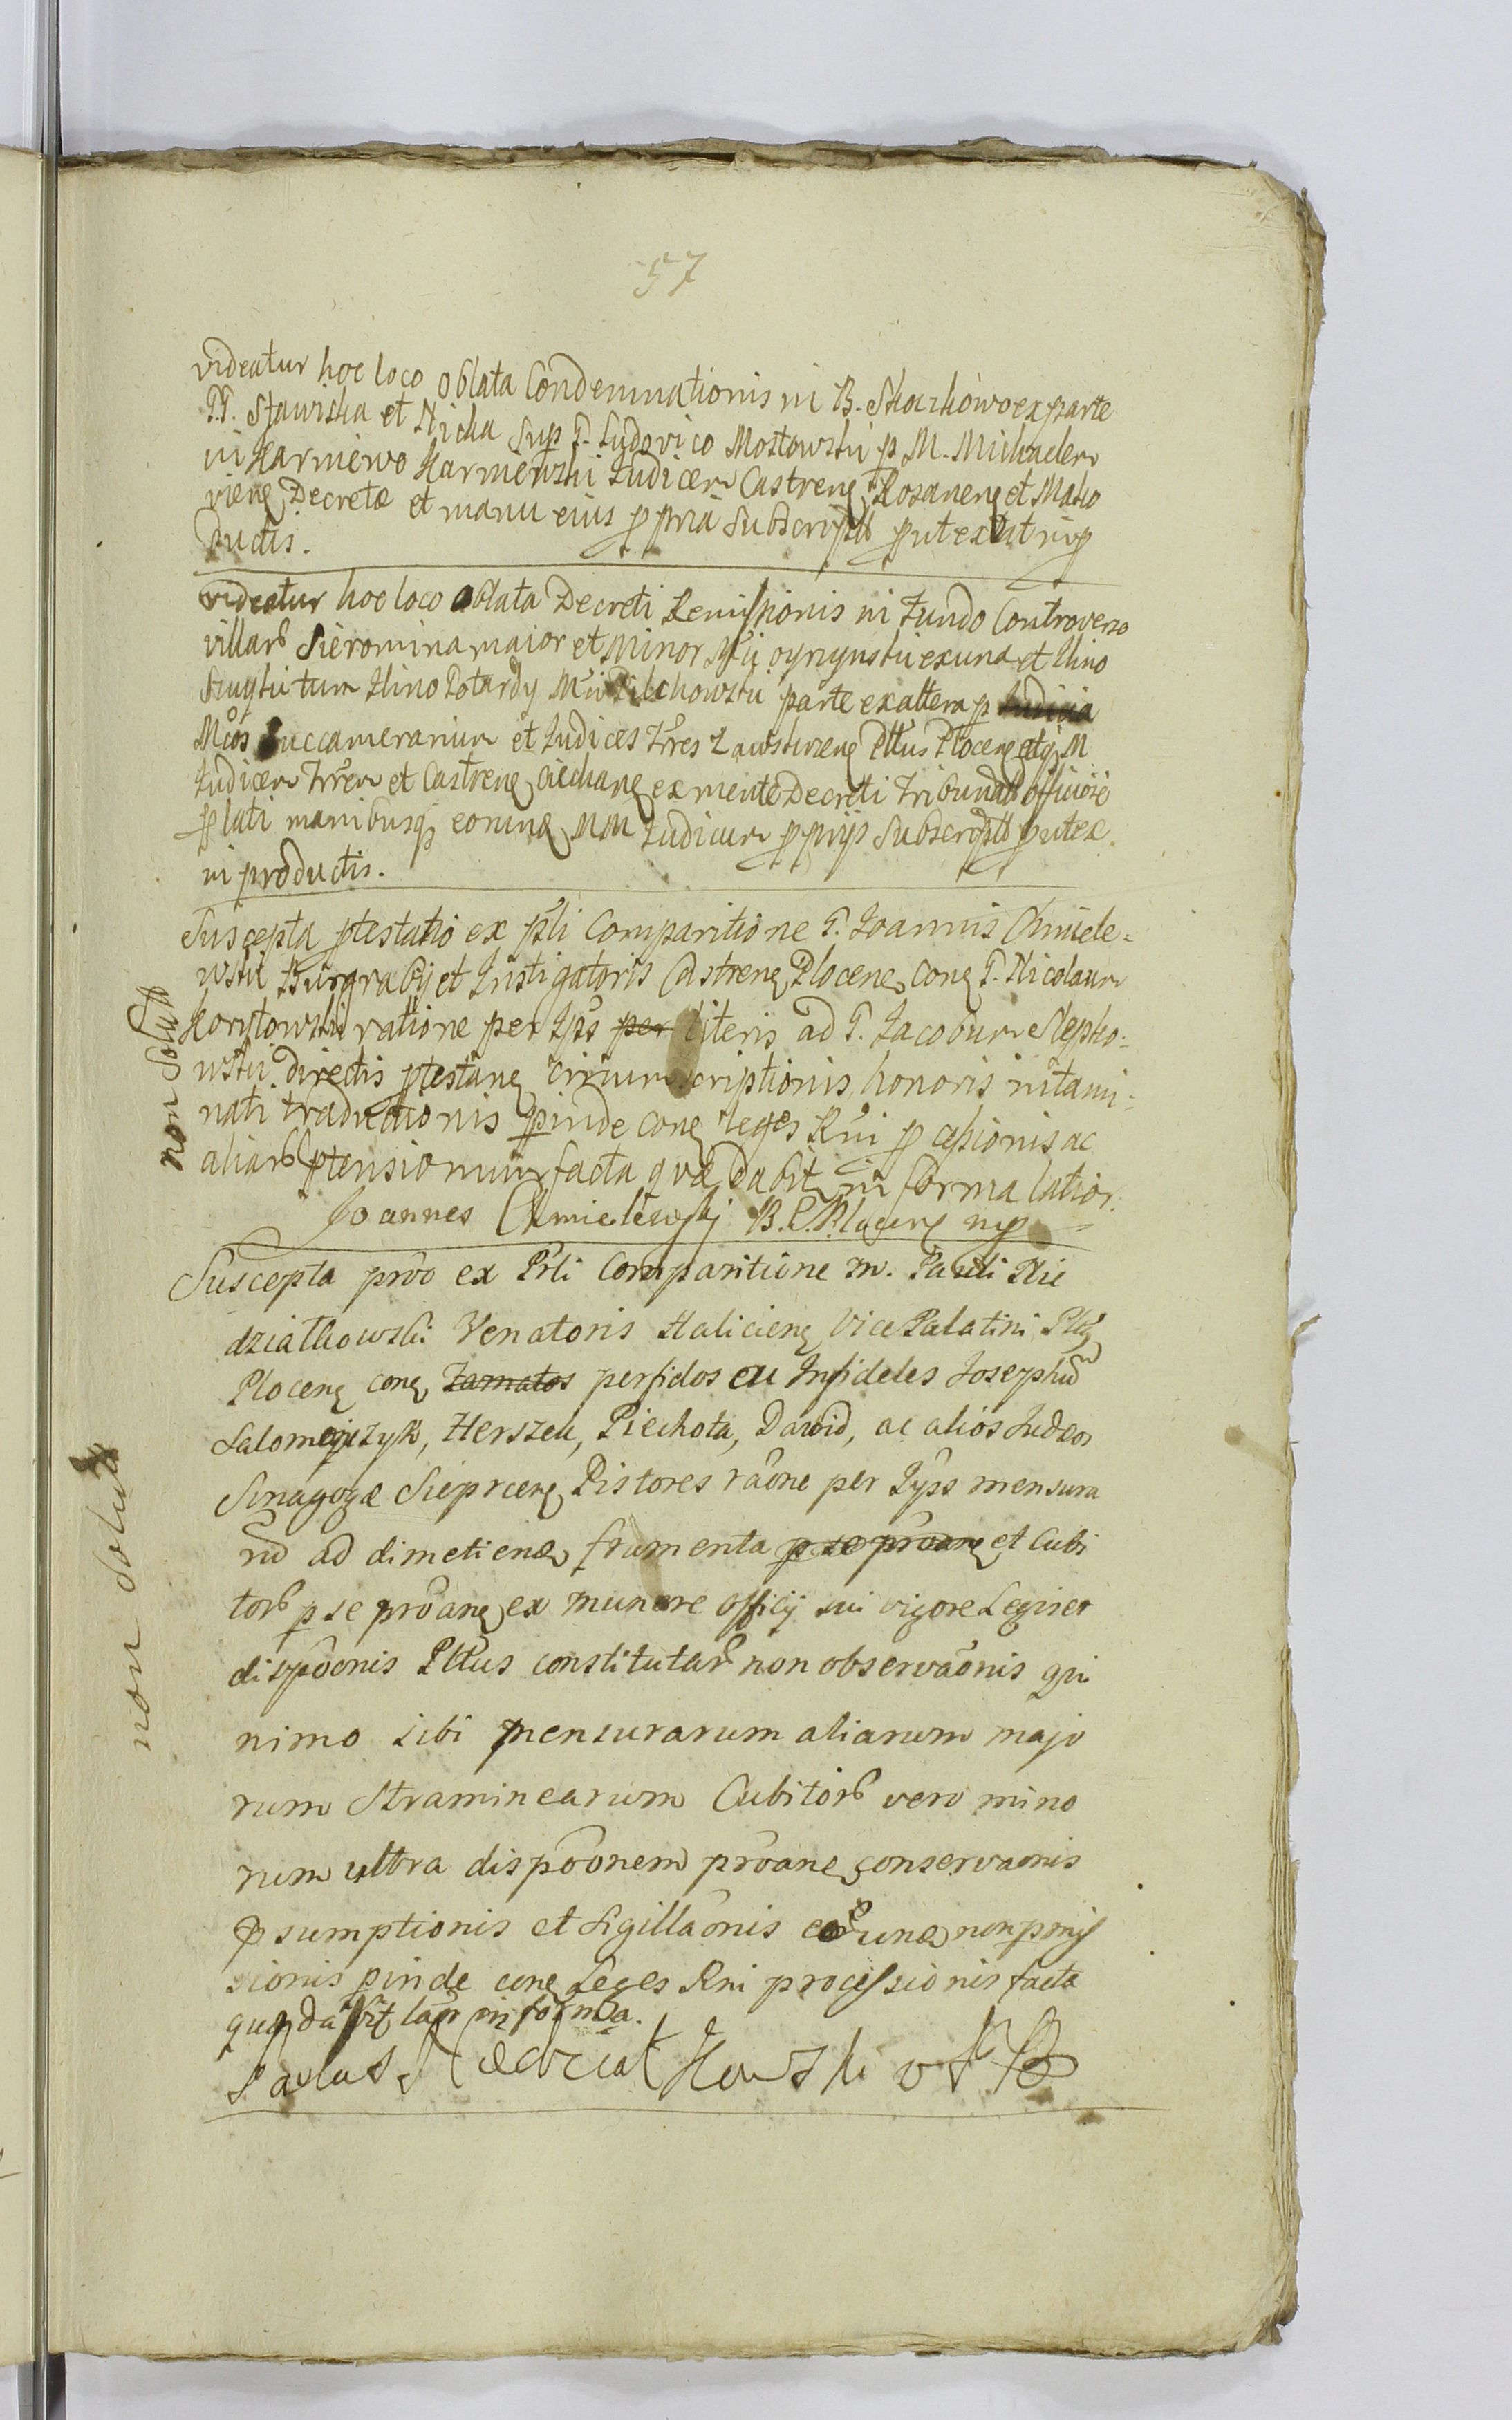 57
videatur hoc loco oblata Condemnationis in B. Skarżkowo ex parte
PP. Stawiska et Nicka sup P. Ludovico Mostowski p M. Michaelem
in Karniewo Karniewski Judicem Castren Rosanen et Mako
vien Decretæ et manu eius ppria subscript put exstat in p
ductis.
videatur hoc loco oblata Decreti Remissionis in Fundo Controverso
villar Sieromina maior et minor et Minor ex una et
tum parte ex altera p Judicia
Mcos Succamerarium et Judices Trres Zawskrzen Pttus Plocen atq M
Judicem Trrem et Castren Ciechan ex mente Decreti Tribunal officiose
plati manibusq eorund MM Judicum pprijs subscript put ex
in productis.
Suscepta ptestatio ex pnli Comparitione P. Joannis Chmiele=
wski Burgrabij et Instigatoris Castren Plocen con P. Nicolaum
Korytowski ratione per Ips per literis ad P. Jacobum Stepko=
wski directis ptestan circumscriptionis honoris intami=
nati traductionis pinde con leges Rni pcessionis ac
aliar ptensionum facta quæ dabit in forma latior.
Joannes Chmielewskj B. C. Plocen mp
non solut
Suscepta pro ex Prli Comparitione M. Pauli Nie
działkowski Venatoris Halicien Vice Palatini Pltus
Plocen con Famatos perfidos eu Infideles Josephum
Salomonczyk, Herszek, Piechota, Dawid, ac alios Judæos
Sinagogæ Sieprcen Pistores raone per Ips mensura
rum ad dimetiend frumenta p se proan et Cubi
tor p se proan ex munere officij sui vigore Legis et
dispoonis Pltus constitutar non observaonis qui
nimo sibi mensurarum aliarum majo
rum straminearum Cubitor vero mino
rum ultra dispoonem proan conservaonis
psumptionis et Sigillaonis eorund non pmis
sionis pinde con Leges Rni processionis facta
quæ dabit laor in forma.
Paulus Niedziałkowski
non solut